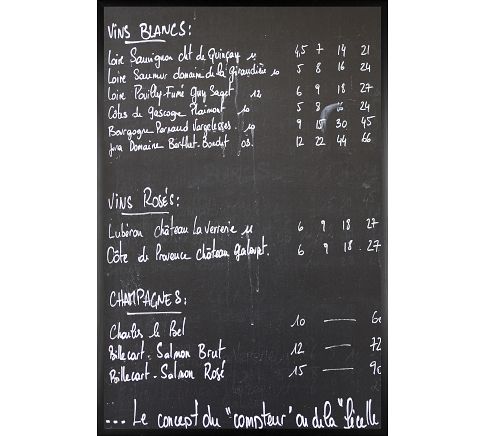 VINS BLANCS:
Loire Sauvignon cht de Quinçay 11 4,5 7 14 21
Loire Saumur domaine de la Giraudière 10 5 8 16 24
Loire Pouilly-Fumé Guy Saget 12 6 9 18 27
Côtes de Gascogne Plaimont 10 5 8 16 24
Bourgogne Pernand Vergelesses. 10 9 15 30 45
Jura Domaine Berthet-Bondet 08. 12 22 44 66
VINS ROSÉS:
Lubéron château la Verrerie 11 6 9 18 27
Côte de Provence château 6 9 18. 27
CHAMPAGNES:
Charles le Bel 10 — 60
Billecart-Salmon Brut 12 — 72
Billecart-Salmon Rosé 15 — 90
... Le concept du "compteur" ou de la "ficelle